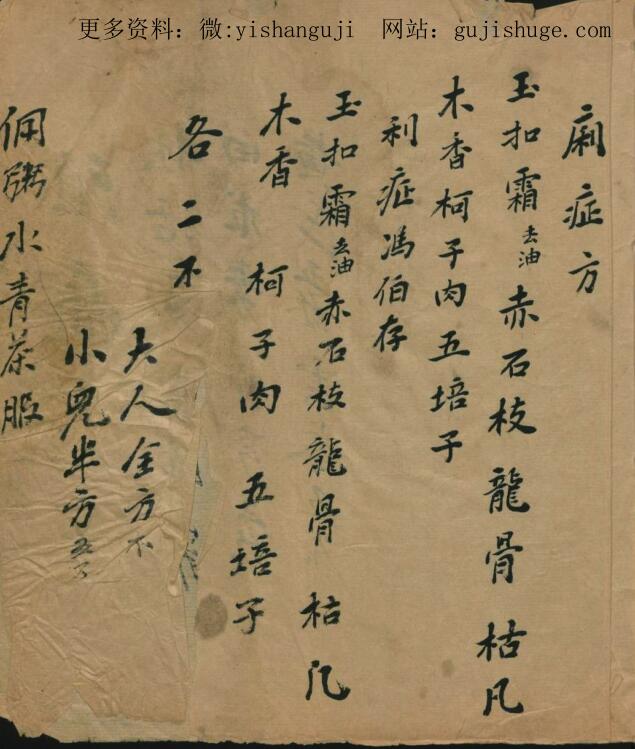 更多资料：微:yishanguji 网站：gujishuge.com
痢症方
玉扣霜去油赤石枝龍骨枯凡
木香柯子肉五培子
利症馮伯存
玉扣霜去油赤石枝龍骨枯凡
木香 柯子肉 五培子
各二不
大人全方不
小兒半方
粥水青茶服